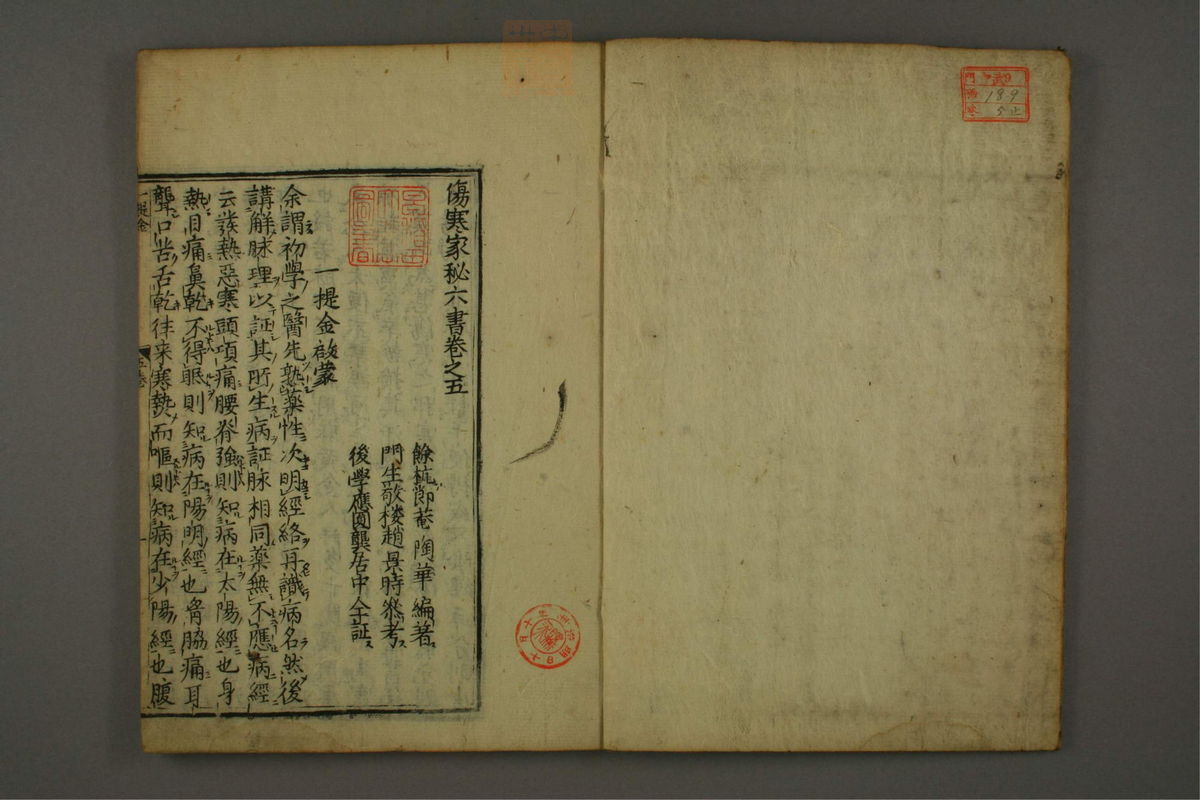 傷寒家秘六書卷之五
餘杭節菴陶華編著
門生敬楼趙景時叅考
後學應圓龔居中仝訨
一提金啟蒙
余謂初學之醫先熟藥性次明經絡再識病名然後
講解脉理以証其所生病証脉相同藥無不應病經
云發熱惡寒頭項痛腰脊強則知病在太陽經也身
熱目痛鼻乾不得眠則知病在陽明經也胷脇痛耳
聾口苦舌乾徃来寒熱而嘔則知病在少陽經也腹
一提金
五卷
一
189